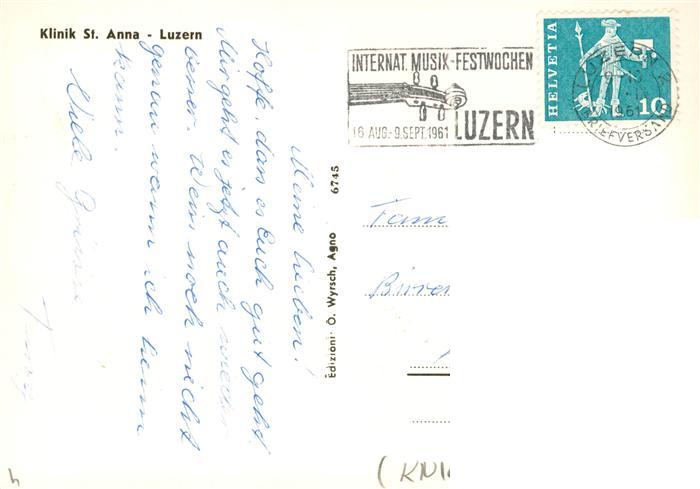 Klinik St. Anna - Luzern
Meine Lieben!
Hoffe, dass es Euch gut geht.
Mir geht es jetzt auch wieder
besser. Weiss noch nicht
genau wann ich heim
kann.
Viele Grüsse
Edizioni: O. Wyrsch, Agno 6745
INTERNAT. MUSIK-FESTWOCHEN
16 AUG.-9.SEPT.1961 LUZERN
HELVETIA
10
LUZERN
BRIEFVERSAND
Fam
Büren